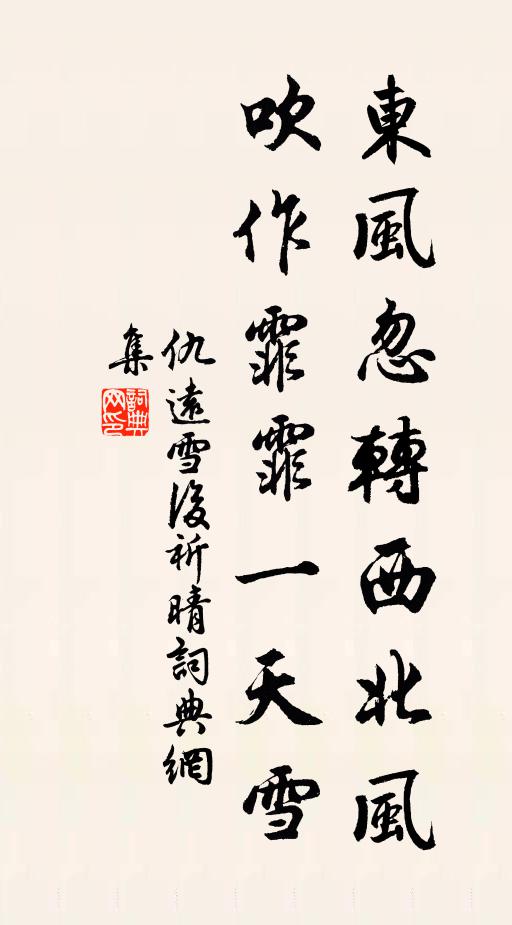 東風忽轉西北風
吹作霏霏一天雪
仇遠雪後祈晴詞典網
集
詞典
网印